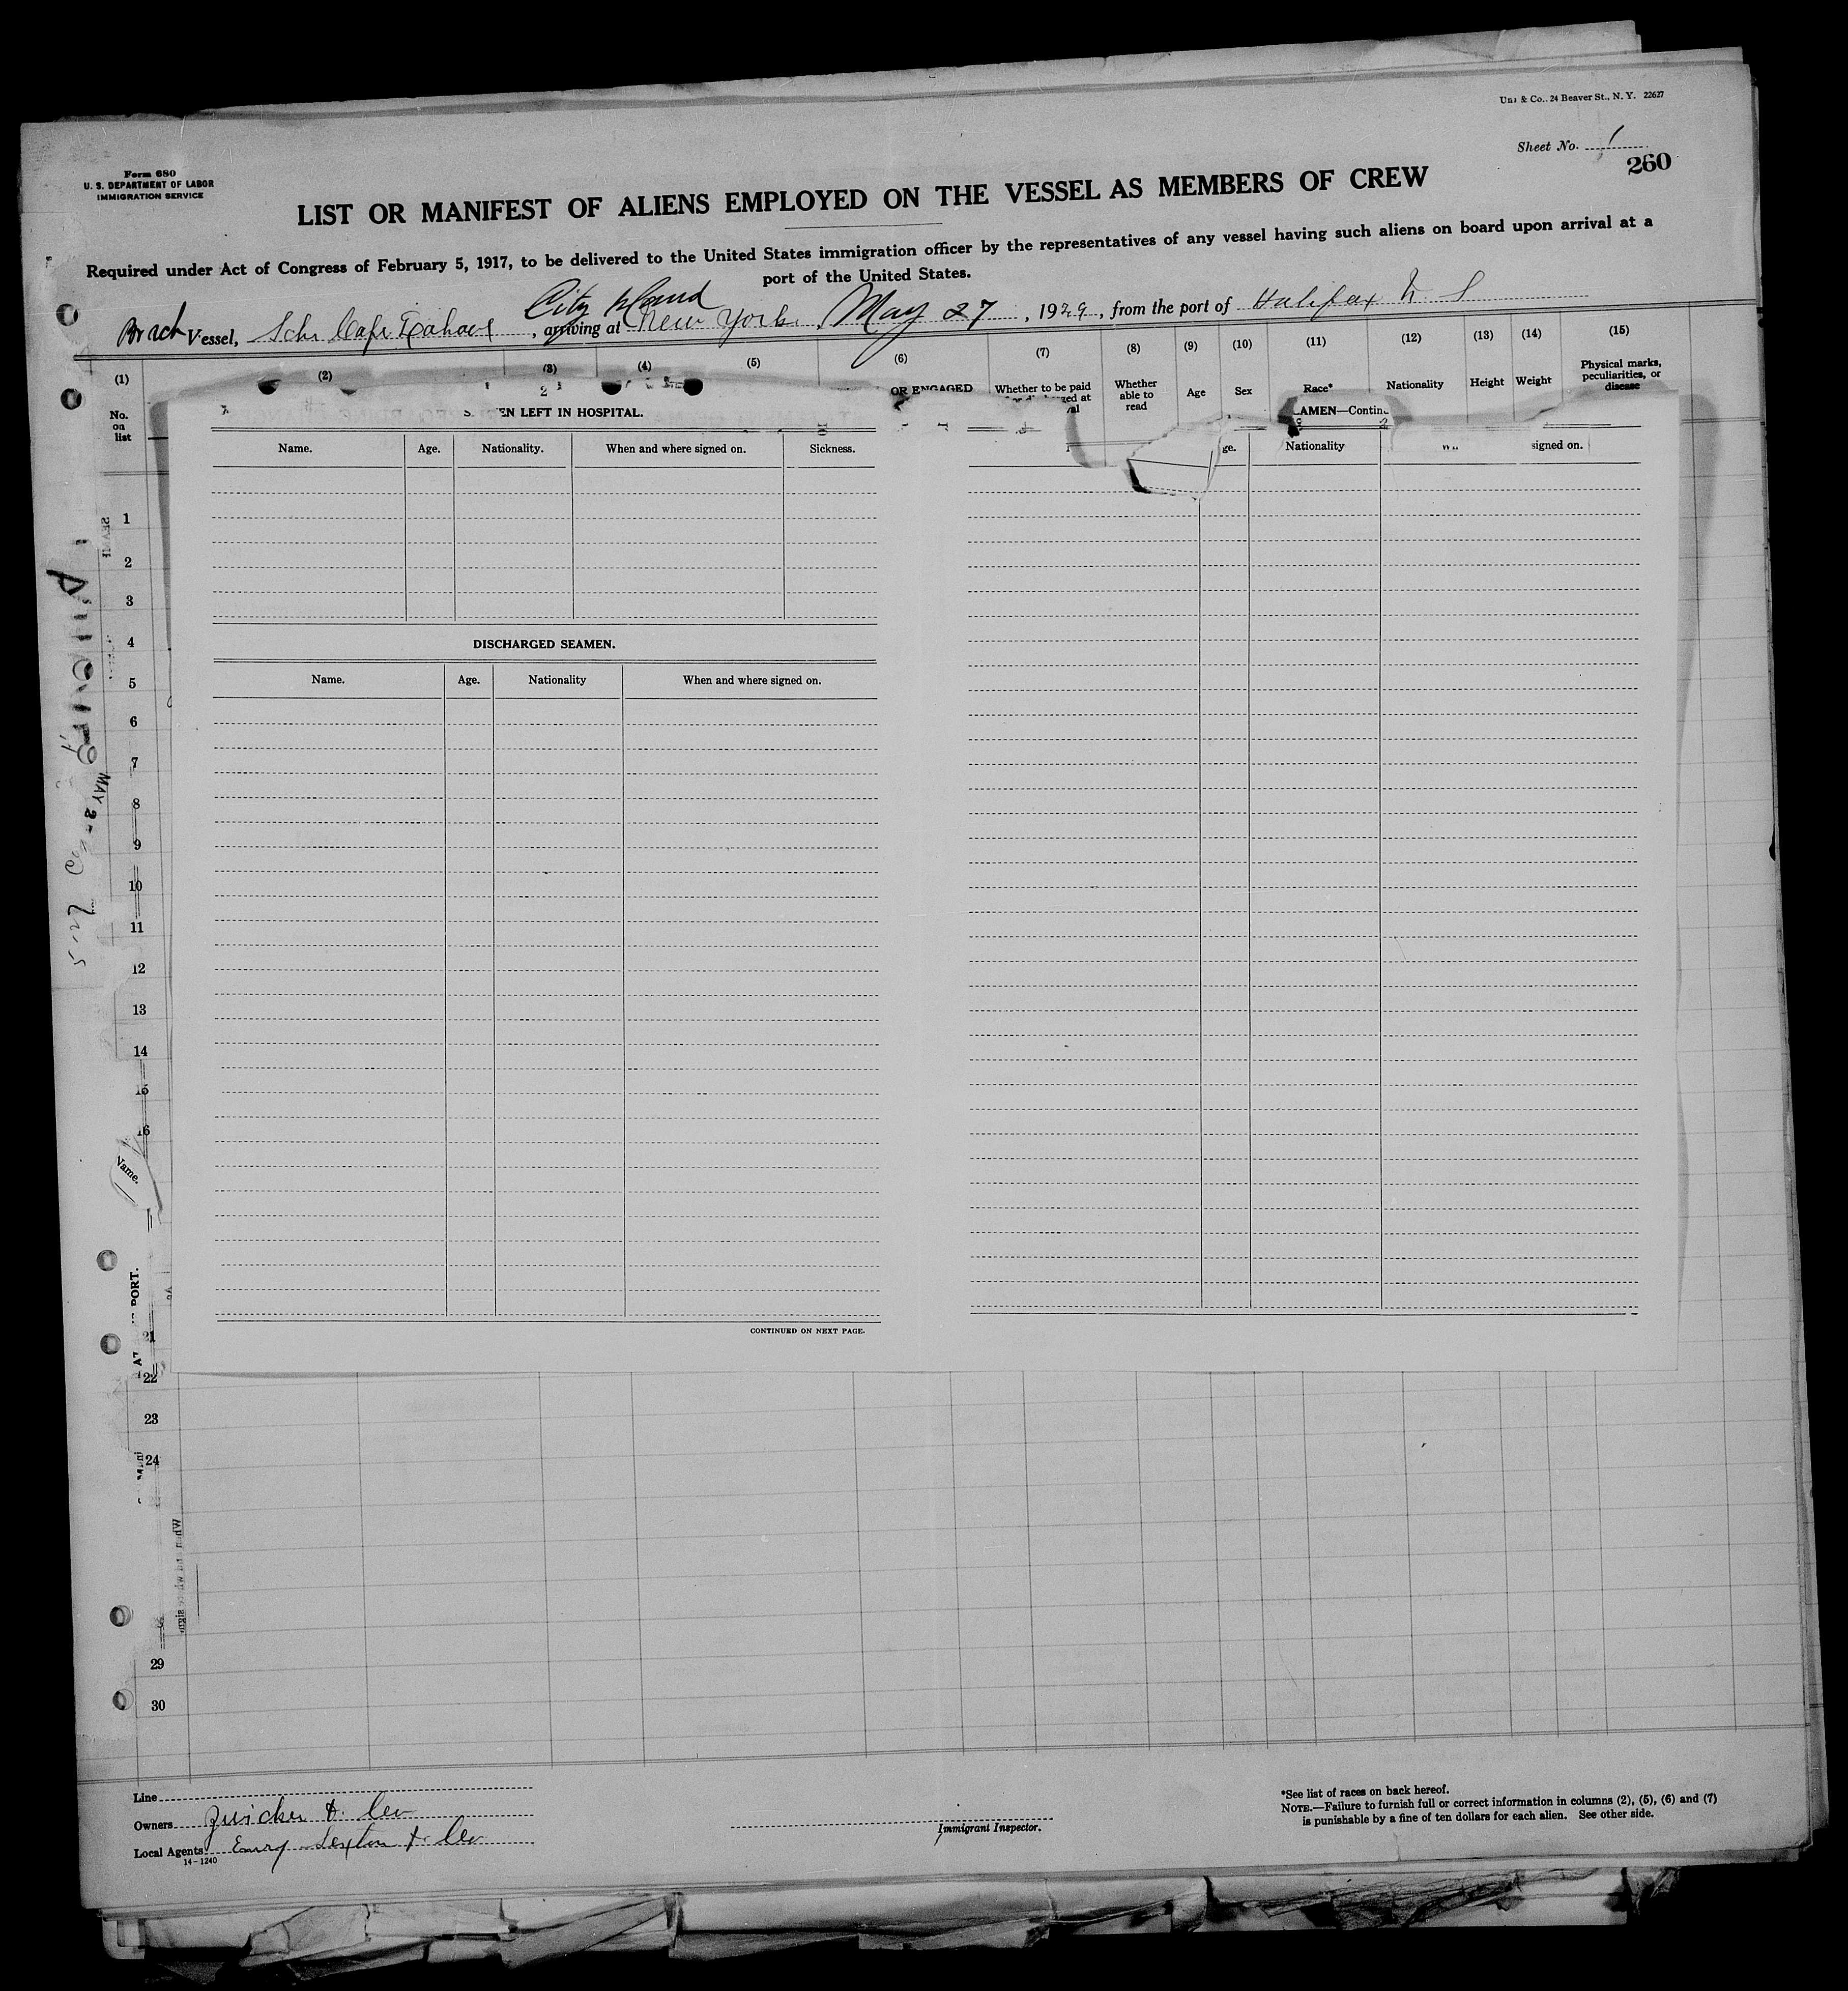 & Co., 24 Beaver St., N. Y. 22627
Sheet No. 1
260
Form 680
U. S. DEPARTMENT OF LABOR
IMMIGRATION SERVICE
LIST OR MANIFEST OF ALIENS EMPLOYED ON THE VESSEL AS MEMBERS OF CREW
Required under Act of Congress of February 5, 1917, to be delivered to the United States immigration officer by the representatives of any vessel having such aliens on board upon arrival at a
port of the United States.
City Island
Vessel, Schr Cape , arriving at New York, May 27, 1929, from the port of Halifax N S
(1) (2) (3) (4) (5) (6) (7) (8) (9) (10) (11) (12) (13) (14) (15)
No. on list
OR ENGAGED
Whether to be paid
Whether able to read
Age
Sex
Race*
Nationality
Height
Weight
Physical marks, peculiarities, or disease
EN LEFT IN HOSPITAL.
Name. Age. Nationality. When and where signed on. Sickness.
DISCHARGED SEAMEN.
Name. Age. Nationality When and where signed on.
CONTINUED ON NEXT PAGE.
AMEN—Contin
ge. Nationality signed on.
1
2
3
4
5
6
7
8
9
10
11
12
13
14
15
16
21
22
23
24
29
30
Name.
PORT.
MAY 2
Line
Owners Zwicker & Co
Local Agents Sexton & Co
14-1240
Immigrant Inspector.
*See list of races on back hereof.
NOTE.—Failure to furnish full or correct information in columns (2), (5), (6) and (7)
is punishable by a fine of ten dollars for each alien. See other side.